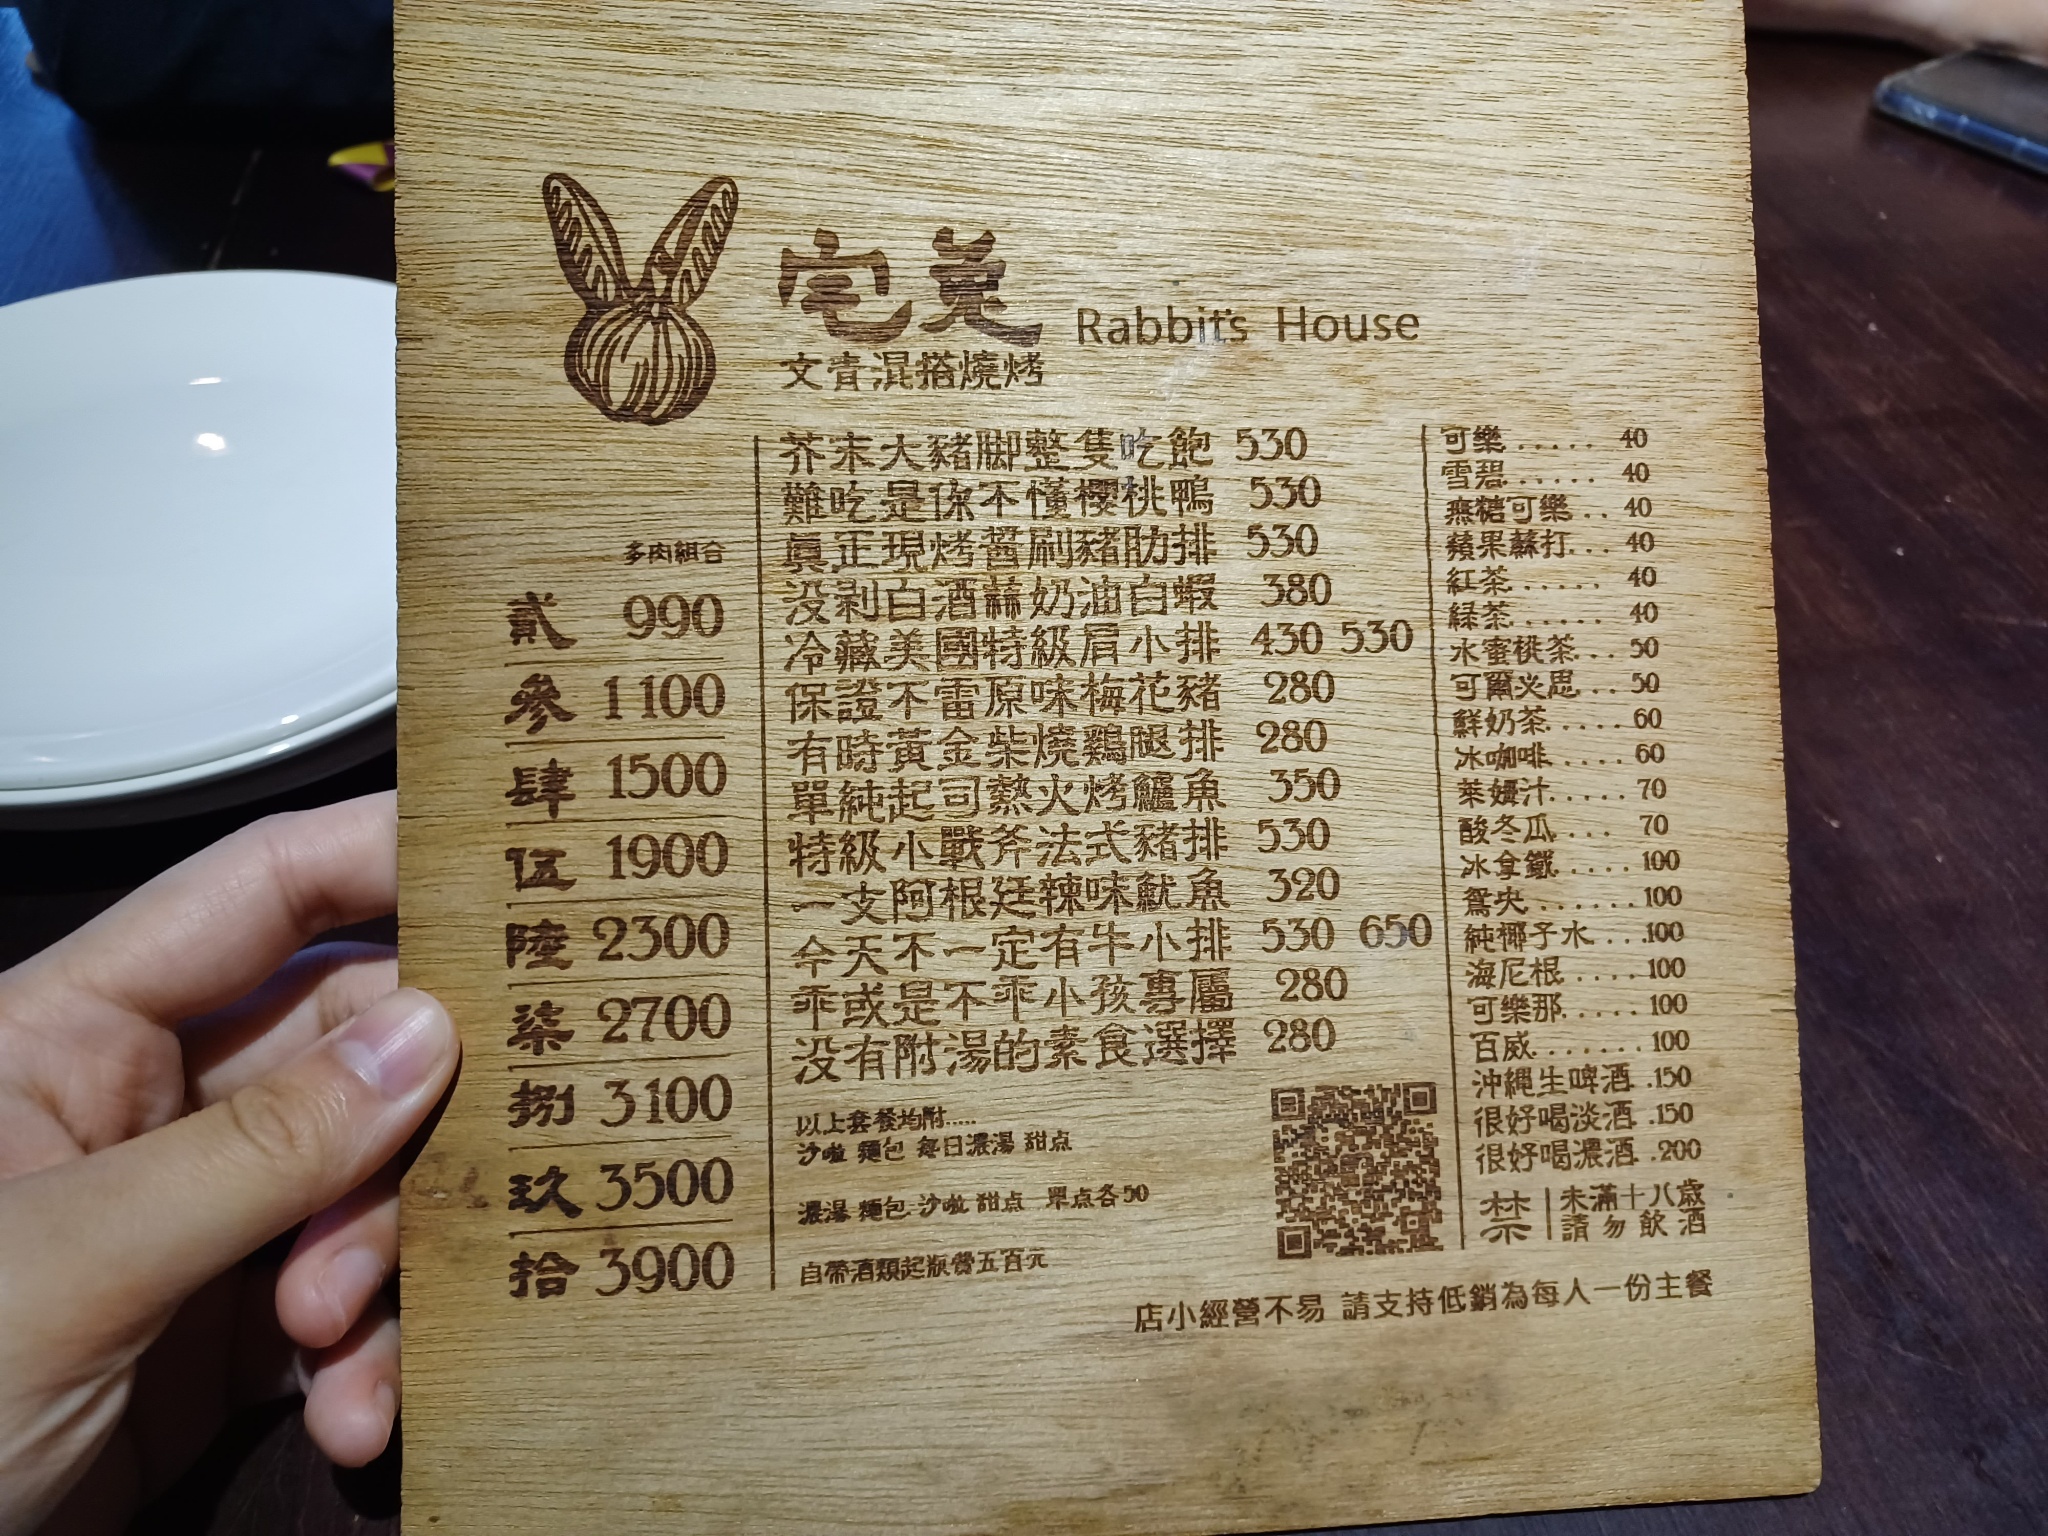 宅兔 Rabbit's House
文青混搭燒烤
多肉組合
貳 990
參 1100
肆 1500
伍 1900
陸 2300
柒 2700
捌 3100
玖 3500
拾 3900
芥末大豬脚整隻吃飽 530
難吃是你不懂櫻桃鴨 530
真正現烤醬刷豬肋排 530
没剥白酒蒜奶油白蝦 380
冷藏美國特級肩小排 430 530
保證不雷原味梅花豬 280
有時黃金柴燒鷄腿排 280
單純起司熱火烤鱸魚 350
特級小戰斧法式豬排 530
一支阿根廷辣味魷魚 320
今天不一定有牛小排 530 650
乖或是不乖小孩專屬 280
没有附湯的素食選擇 280
以上套餐均附.....
沙啦 麵包 每日濃湯 甜点
濃湯 麵包 沙啦 甜点 單点各50
自帶酒類起瓶費五百元
可樂..... 40
雪碧..... 40
無糖可樂.. 40
蘋果蘇打... 40
紅茶..... 40
緑茶..... 40
水蜜桃茶... 50
可爾必思... 50
鮮奶茶.... 60
冰咖啡.... 60
萊姆汁..... 70
酸冬瓜.... 70
冰拿鐵.... 100
鴛央....... 100
純椰子水....100
海尼根.... 100
可樂那..... 100
百威....... 100
沖縄生啤酒.150
很好喝淡酒.150
很好喝濃酒.200
禁 未滿十八歲
請勿飲酒
店小經營不易 請支持低銷為每人一份主餐